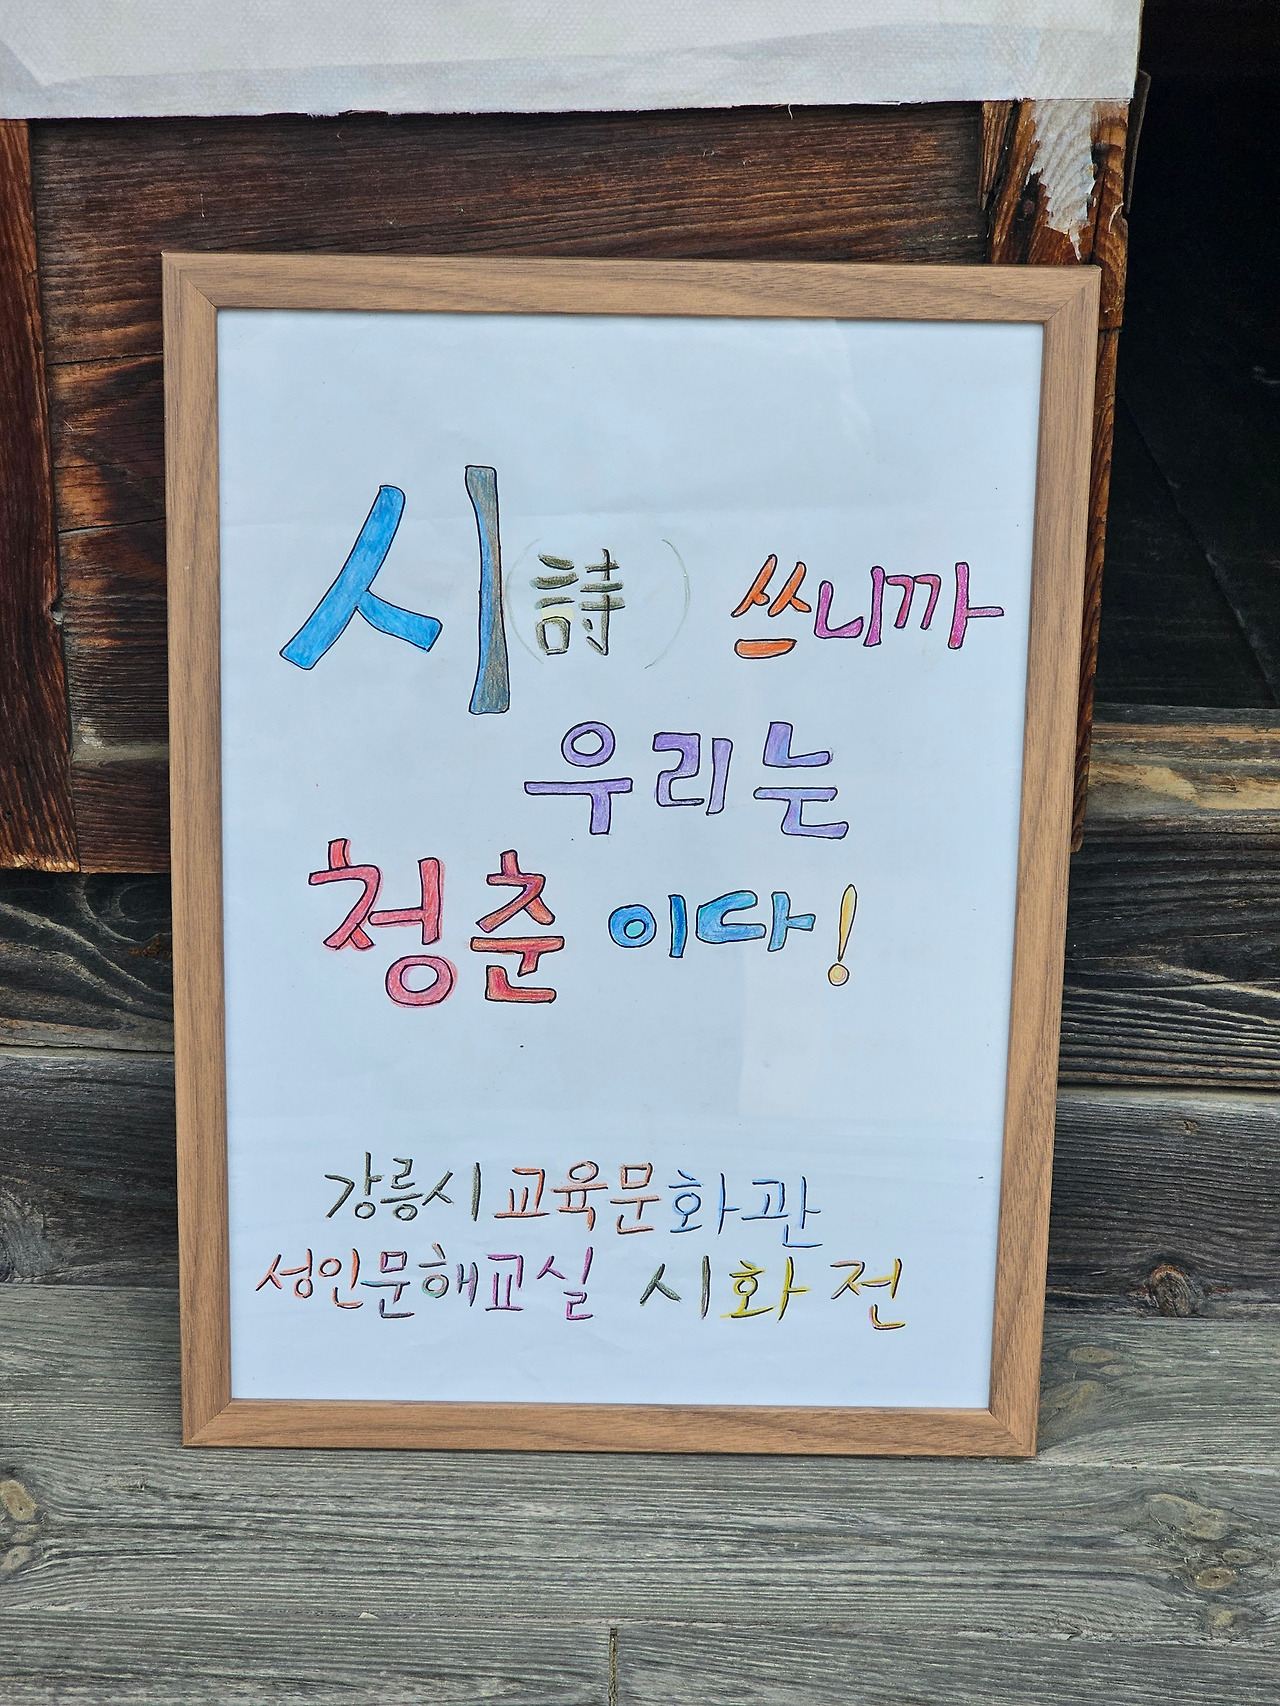 시(詩) 쓰니까
우리는
청춘이다!
강릉시교육문화관
성인문해교실 시화전